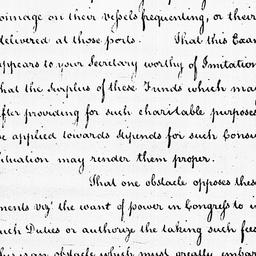 oinage on their vessels frequenting, or their
delivered at those ports. That this Exam
appears to your Secretary worthy of Imitation
that the Surplus of these Funds which ma
after providing for such charitable purposes
be applied towards Stipends for such Consu
Situation may render them proper.
That one obstacle opposes these
ments vizt the want of power in Congress to i
uch Duties or authorize the taking such fees
This is an obstacle which must greatly embar